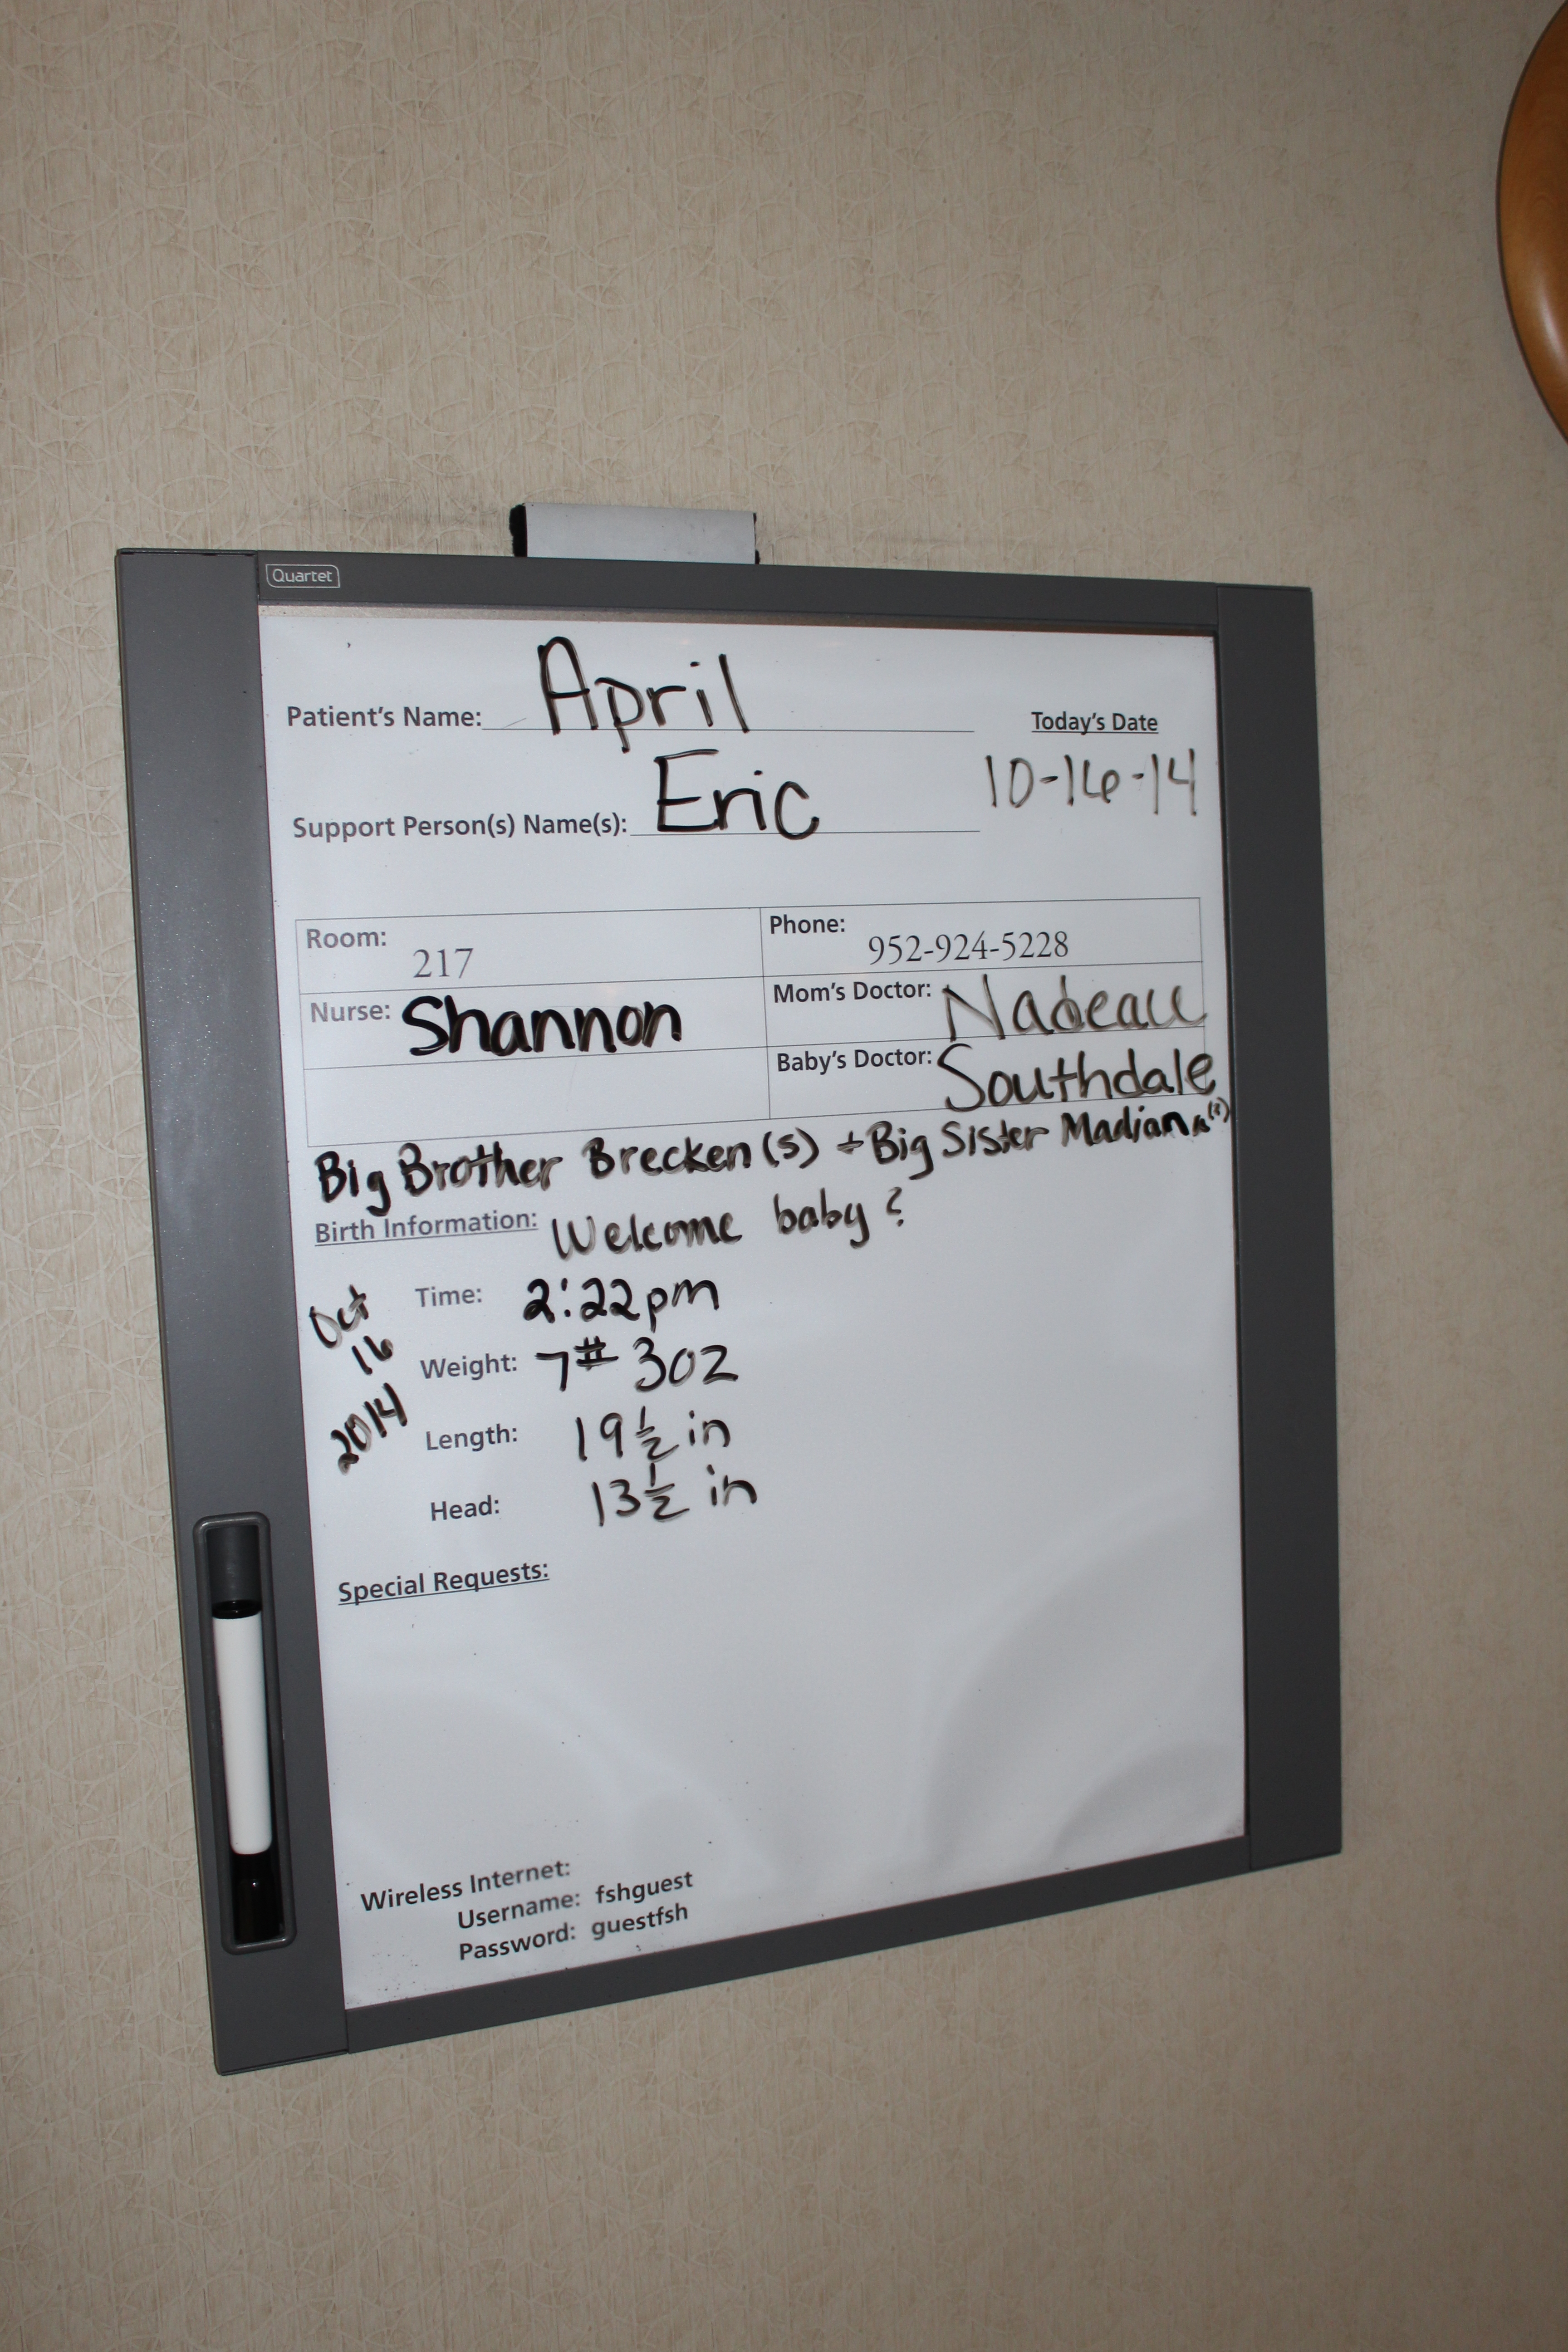 Quartet
Patient's Name: April
Today's Date
Support Person(s) Name(s): Eric
10-16-14
Room: 217
Phone: 952-924-5228
Nurse: Shannon
Mom's Doctor: Nadeau
Baby's Doctor: Southdale
Big Brother Brecken (5) + Big Sister Madiana
Birth Information: Welcome baby ?
Oct 16 2014
Time: 2:22pm
Weight: 7# 3oz
Length: 19 1/2 in
Head: 13 1/2 in
Special Requests:
Wireless Internet:
Username: fshguest
Password: guestfsh